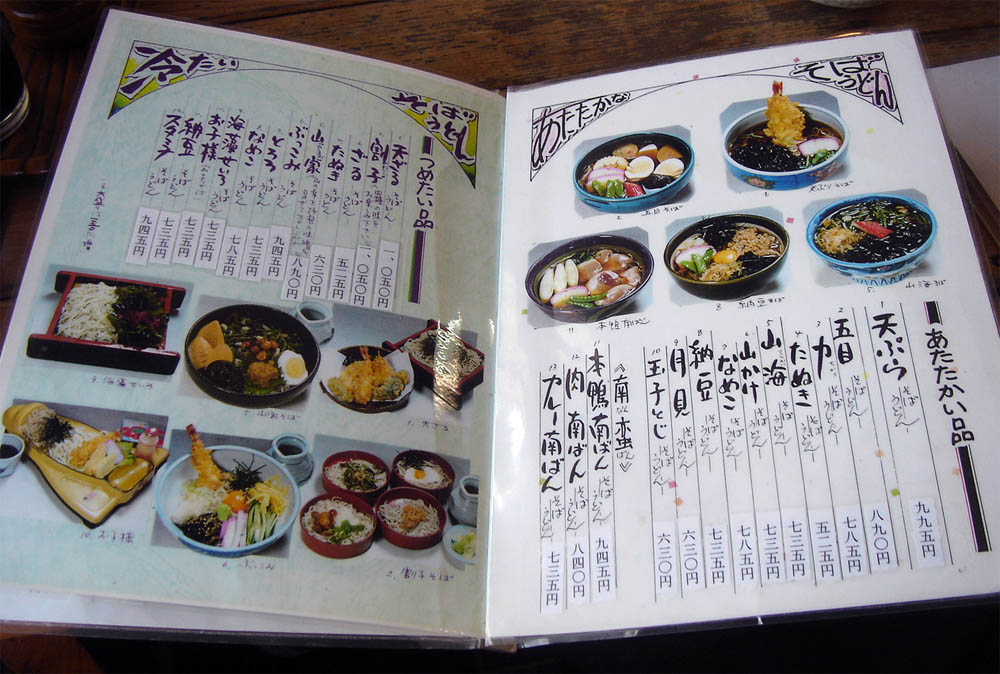 冷たい
そば
うどん
つめたい品
天ざる そば うどん 一、〇五〇円
割子 一、〇五〇円
ざる そば うどん 五二五円
たぬき そば うどん 六三〇円
山家 そば うどん 八九〇円
ぶっこみ 九四五円
とろろ そば うどん 七三五円
なめこ そば うどん 七八五円
海藻せいろ そば うどん 七三五円
お子様 七三五円
納豆 そば うどん 七三五円
スタミナ そば うどん 九四五円
9. 海藻せいろ
5. 山家そば
1. 天ざる
10. お子様
6. ぶっこみ
2. 割子そば
あたたかな
そば
うどん
2. 五目そば
1. 天ぷらそば
11 本鴨南ばん
8 納豆そば
5. 山海そば
あたたかい品
1 天ぷら そば うどん 九九五円
2 五目 そば うどん 八九〇円
3 力 そば うどん 七八五円
4 たぬき そば うどん 五二五円
5 山海 そば うどん 七三五円
6 山かけ そば うどん 七三五円
7 なめこ そば うどん 七八五円
8 納豆 そば うどん 七三五円
9 月見 そば うどん 六三〇円
10 玉子とじ そば うどん 六三〇円
《南蛮》
11 本鴨南ばん そば うどん 九四五円
12 肉南ばん そば うどん 八四〇円
13 カレー南ばん そば うどん 七三五円